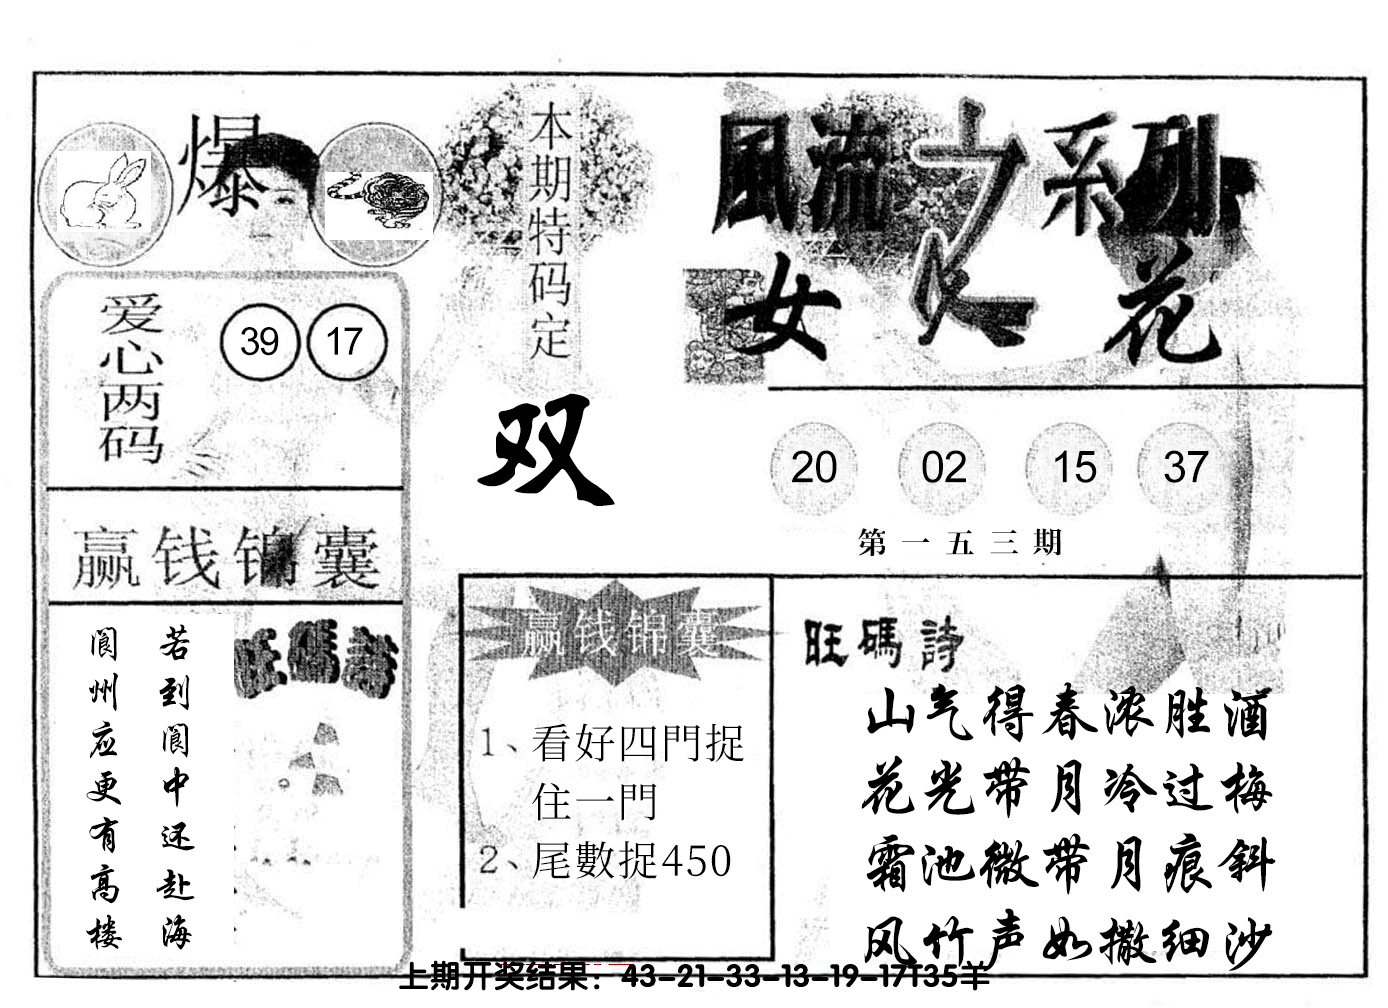 爆
本期特码定
双
爱心两码
39 17
赢钱锦囊
旺碼詩
若到阆中还赴海
阆州应更有高楼
風流之系列
女人花
20 02 15 37
第一五三期
赢钱锦囊
1、看好四門捉
住一門
2、尾數捉450
旺碼詩
山气得春浓胜酒
花光带月冷过梅
霜池微带月痕斜
风竹声如撒细沙
上期开奖结果：43-21-33-13-19-17T35羊